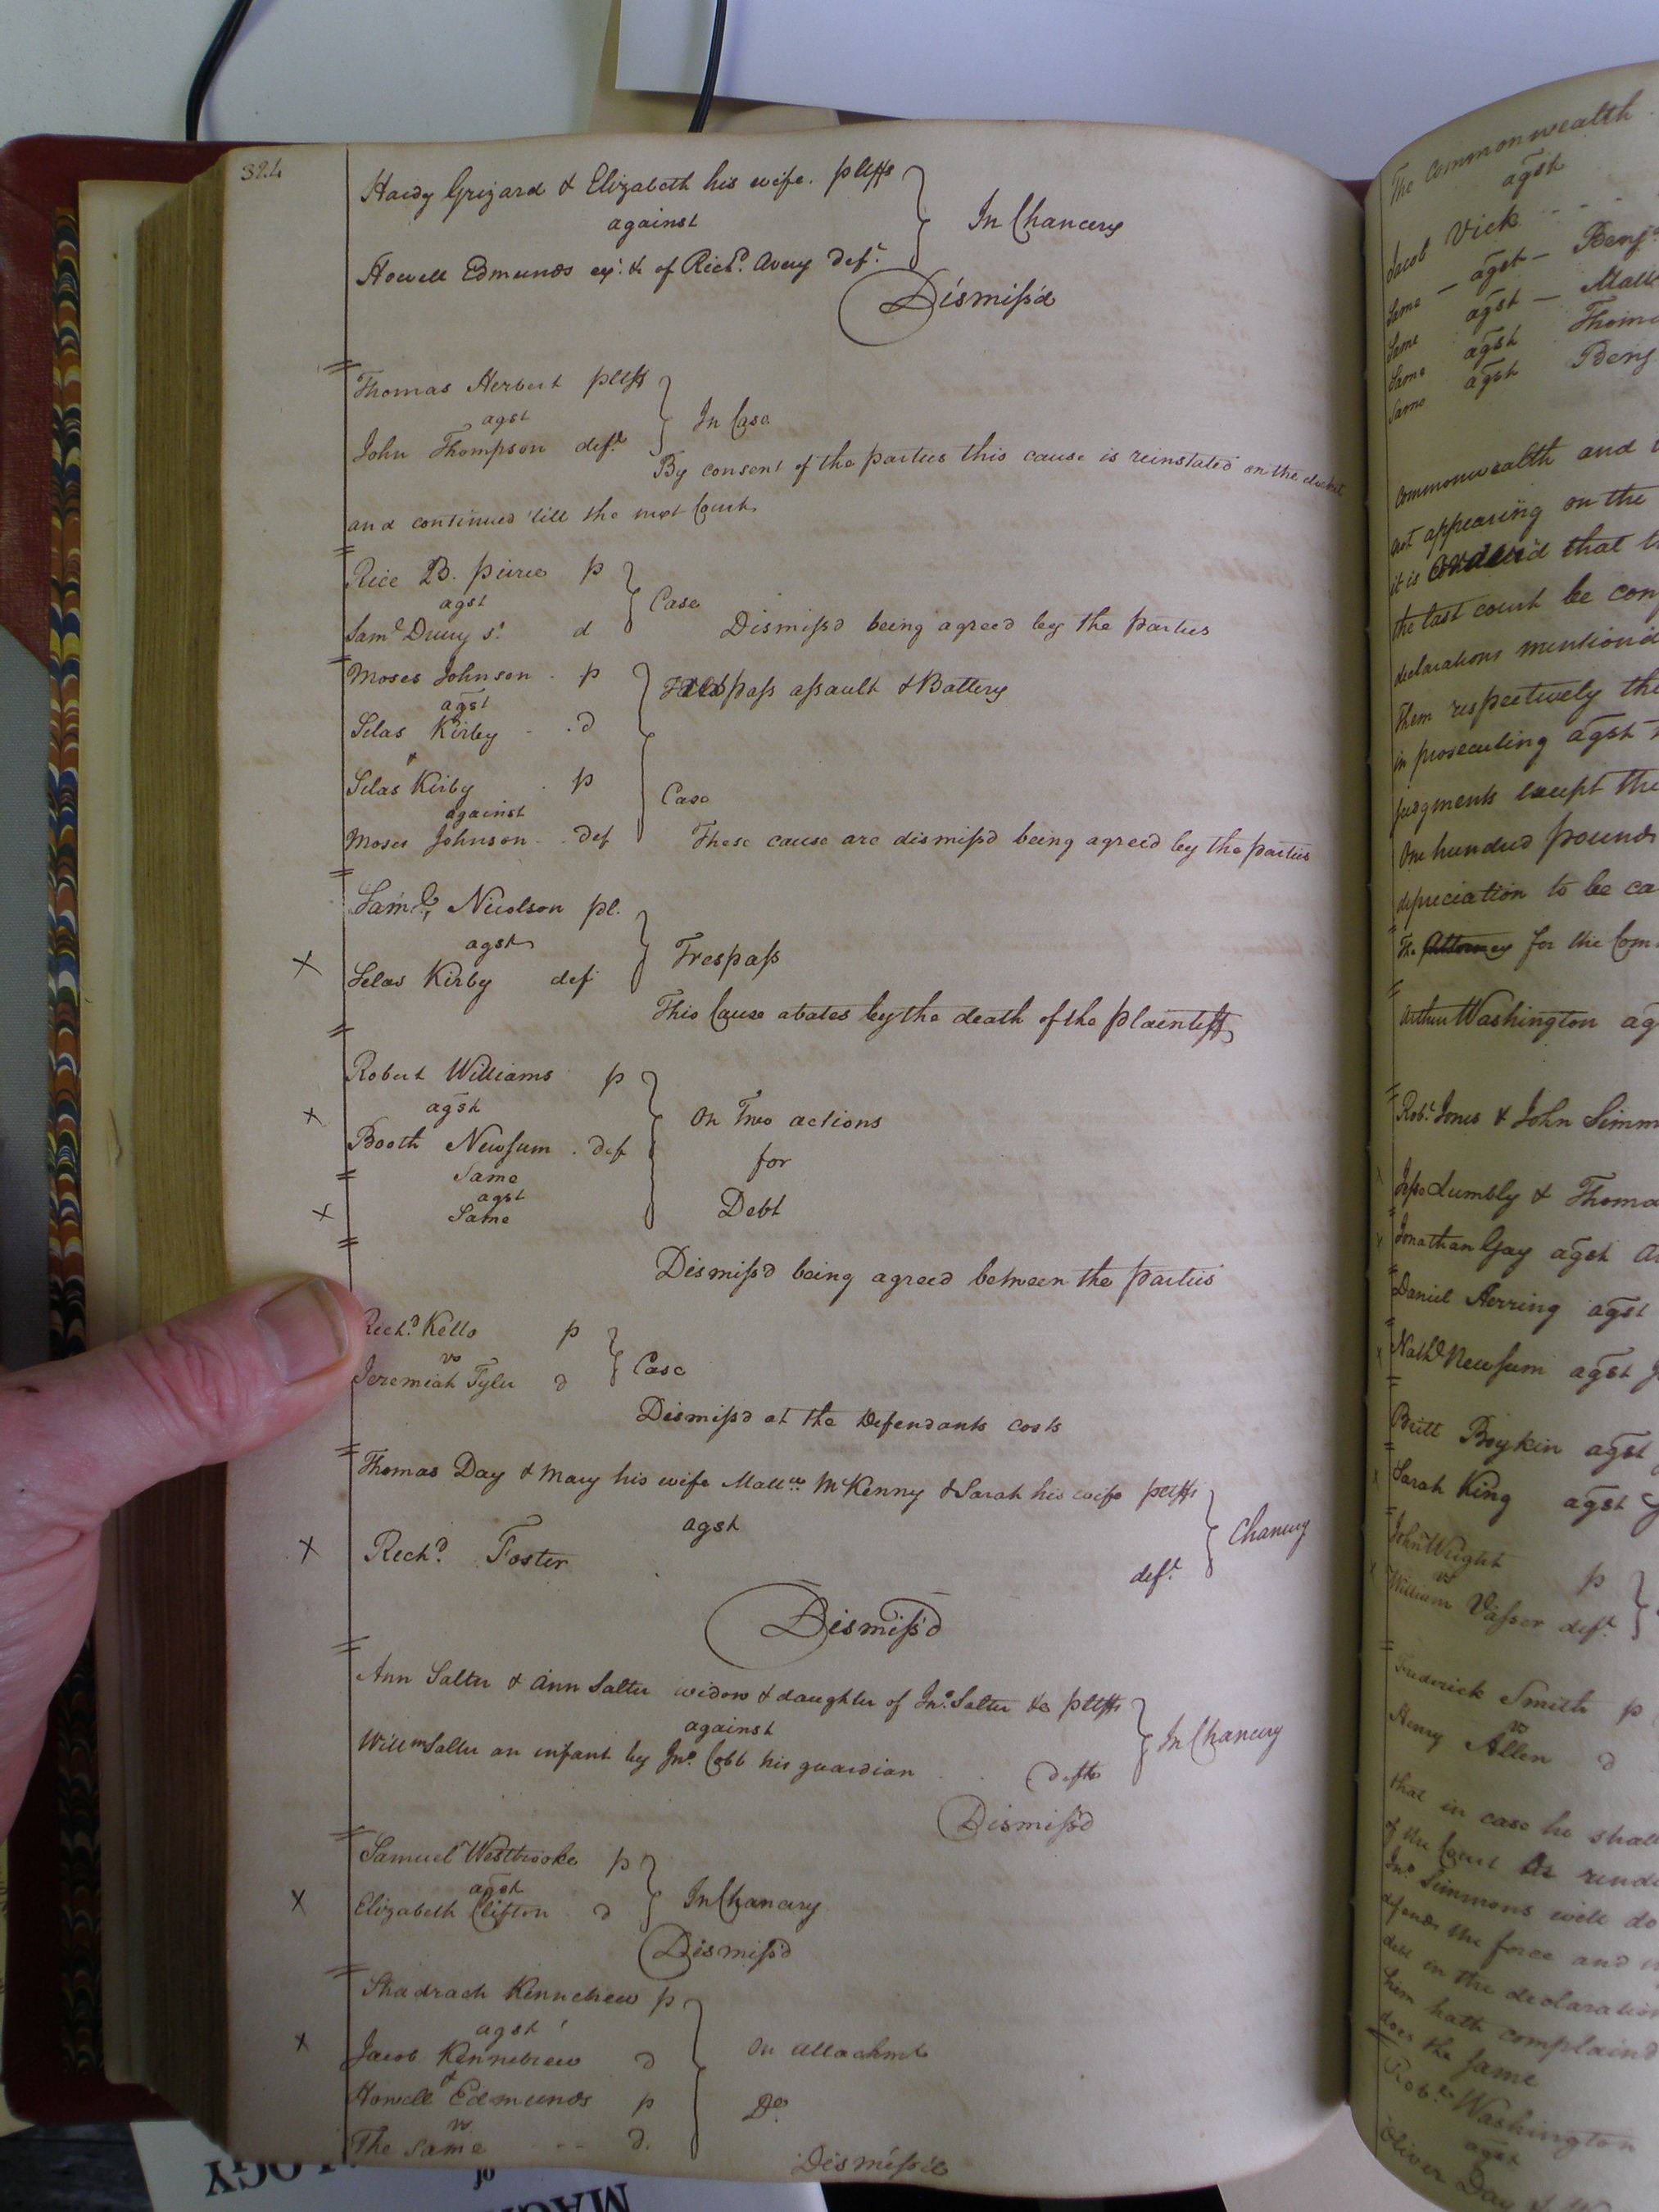 324
Hardy Grizard & Elizabeth his wife. pltffs
against
In Chancery
Howell Edmunds exr. &c of Richd. Avery Deft.
Dismiss'd
Thomas Herbert pltff
agst
In Case
John Thompson deft.
By consent of the parties this cause is reinstated on the docket
and continued 'till the next Court.
Rice B. Peirce p
agst
Case
Saml Drury Sr. d
Dismiss'd being agreed by the parties
Moses Johnson p
Trespass assault & Battery
agst
Selas Kirby d
Selas Kirby p
Case
against
Moses Johnson Def
These cause are dismiss'd being agreed by the parties
Saml. Nicolson pl.
agst
Trespass
Selas Kirby def
This Cause abates by the death of the plaintiff
Robert Williams p
agst
On Two actions
Booth Newsum Def
for
Same
agst
Same
Debt
Dismiss'd being agreed between the parties
Richd. Kello p
vs
Case
Jeremiah Tyler d
Dismiss'd at the Defendants costs
Thomas Day & Mary his wife Mattw. McKenny & Sarah his wife pltffs
agst
Chancery
Richd. Foster deft.
Dismiss'd
Ann Salter & Ann Salter widow & daughter of Jno. Salter &c pltffs
against
In Chancery
Willm Salter an infant by Jno. Cobb his guardian defts
Dismiss'd
Samuel Westbrooke p
agst
In Chancery
Elizabeth Clifton d
Dismiss'd
Shadrach Kennebrew p
agst
On attachmt
Jacob Kennebrew d
Howell Edmunds p
Do.
vs
The same d.
Dismiss'd
The Commonwealth
agst
Jacob Vick
Same agst Benja
Same agst
Same agst
Same agst Benj
Commonwealth and
not appearing on the
it is Order'd that
the last court be
declarations mention'd
them respectively the
in prosecuting agst
judgments except the
One hundred pounds
depreciation to be
The Attorney for the Com
Arthur Washington ag
Robt. Jones & John Simm
Jesse Lumbly & Thoma
Jonathan Gay agst
Daniel Herring agst
Nathl Newsum agst
Britt Boykin agst
Sarah King agst
John Wright p
vs
William Vasser deft.
Frederick Smith p
vs
Henry Allen d
that in case he shall
of the Court
Jno. Simmons will do
defends the force and
debt in the declaration
him hath complaind
does the same
Robt. Washington
agst
Oliver Day
OLOGY
of
MAGN